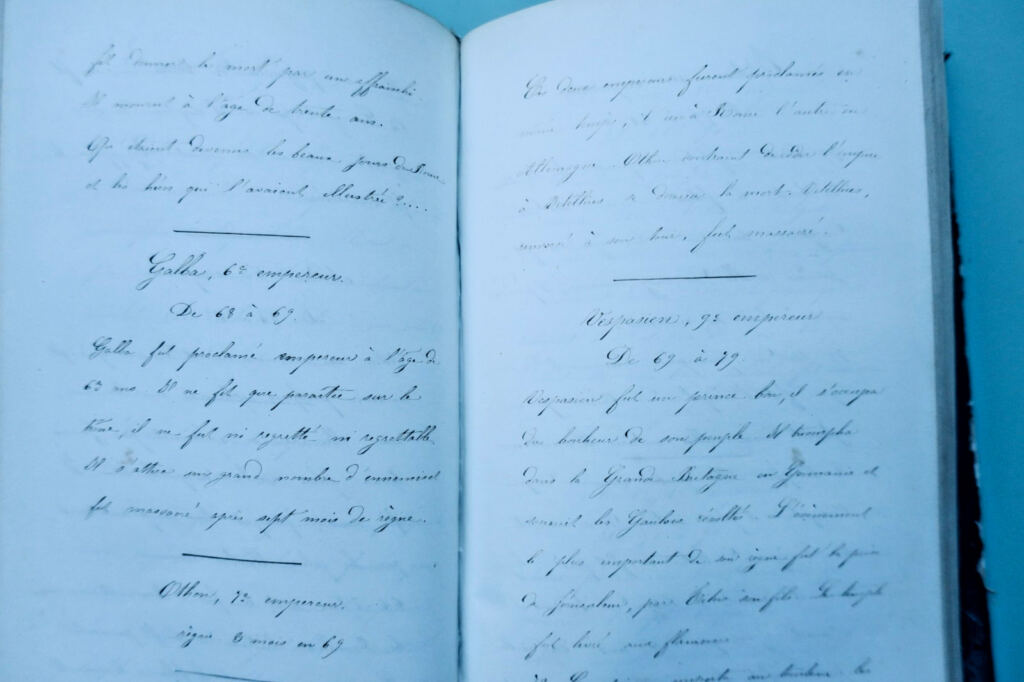 fit donner la mort par un affranchi.
Il mourut à l'âge de trente ans.
Qu'étaient devenus les beaux jours de Rome
et les héros qui l'avaient illustré ?....
Galba, 6e empereur.
De 68 à 69.
Galba fut proclamé empereur à l'âge de
ans. Il ne fit que paraître sur le
trône, il ne fut ni regretté ni regrettable.
Il s'attira un grand nombre d'ennemis et
fut massacré après sept mois de règne.
Othon, 7e empereur.
règne 3 mois en 69
Ces deux empereurs furent proclamés en
même temps, l'un à Rome l'autre en
Allemagne. Othon contraint de céder l'empire
à Vitellius se donna la mort. Vitellius,
renversé à son tour, fut massacré.
Vespasien, 9e empereur
De 69 à 79.
Vespasien fut un prince bon, il s'occupa
du bonheur de son peuple. Il triompha
dans la Grande Bretagne en Germanie et
soumit les Gaulois révoltés. L'évènement
le plus important de son règne fut la prise
de Jérusalem, par Titus son fils. Le temple
fut livré aux flammes.
au bonheur